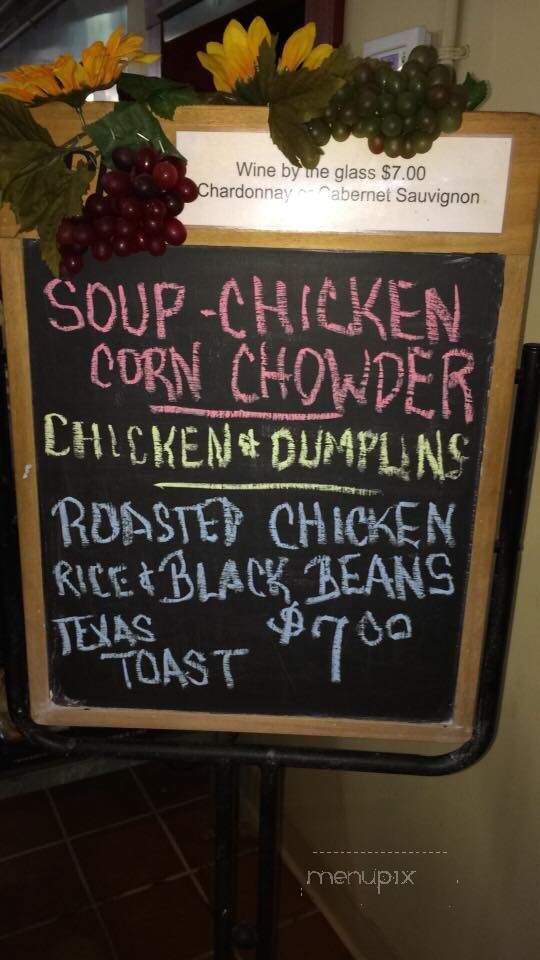 Wine by the glass $7.00
Chardonnay or Cabernet Sauvignon
SOUP - CHICKEN
CORN CHOWDER
CHICKEN & DUMPLINS
ROASTED CHICKEN
RICE & BLACK BEANS
TEXAS $7.00
TOAST
menupix